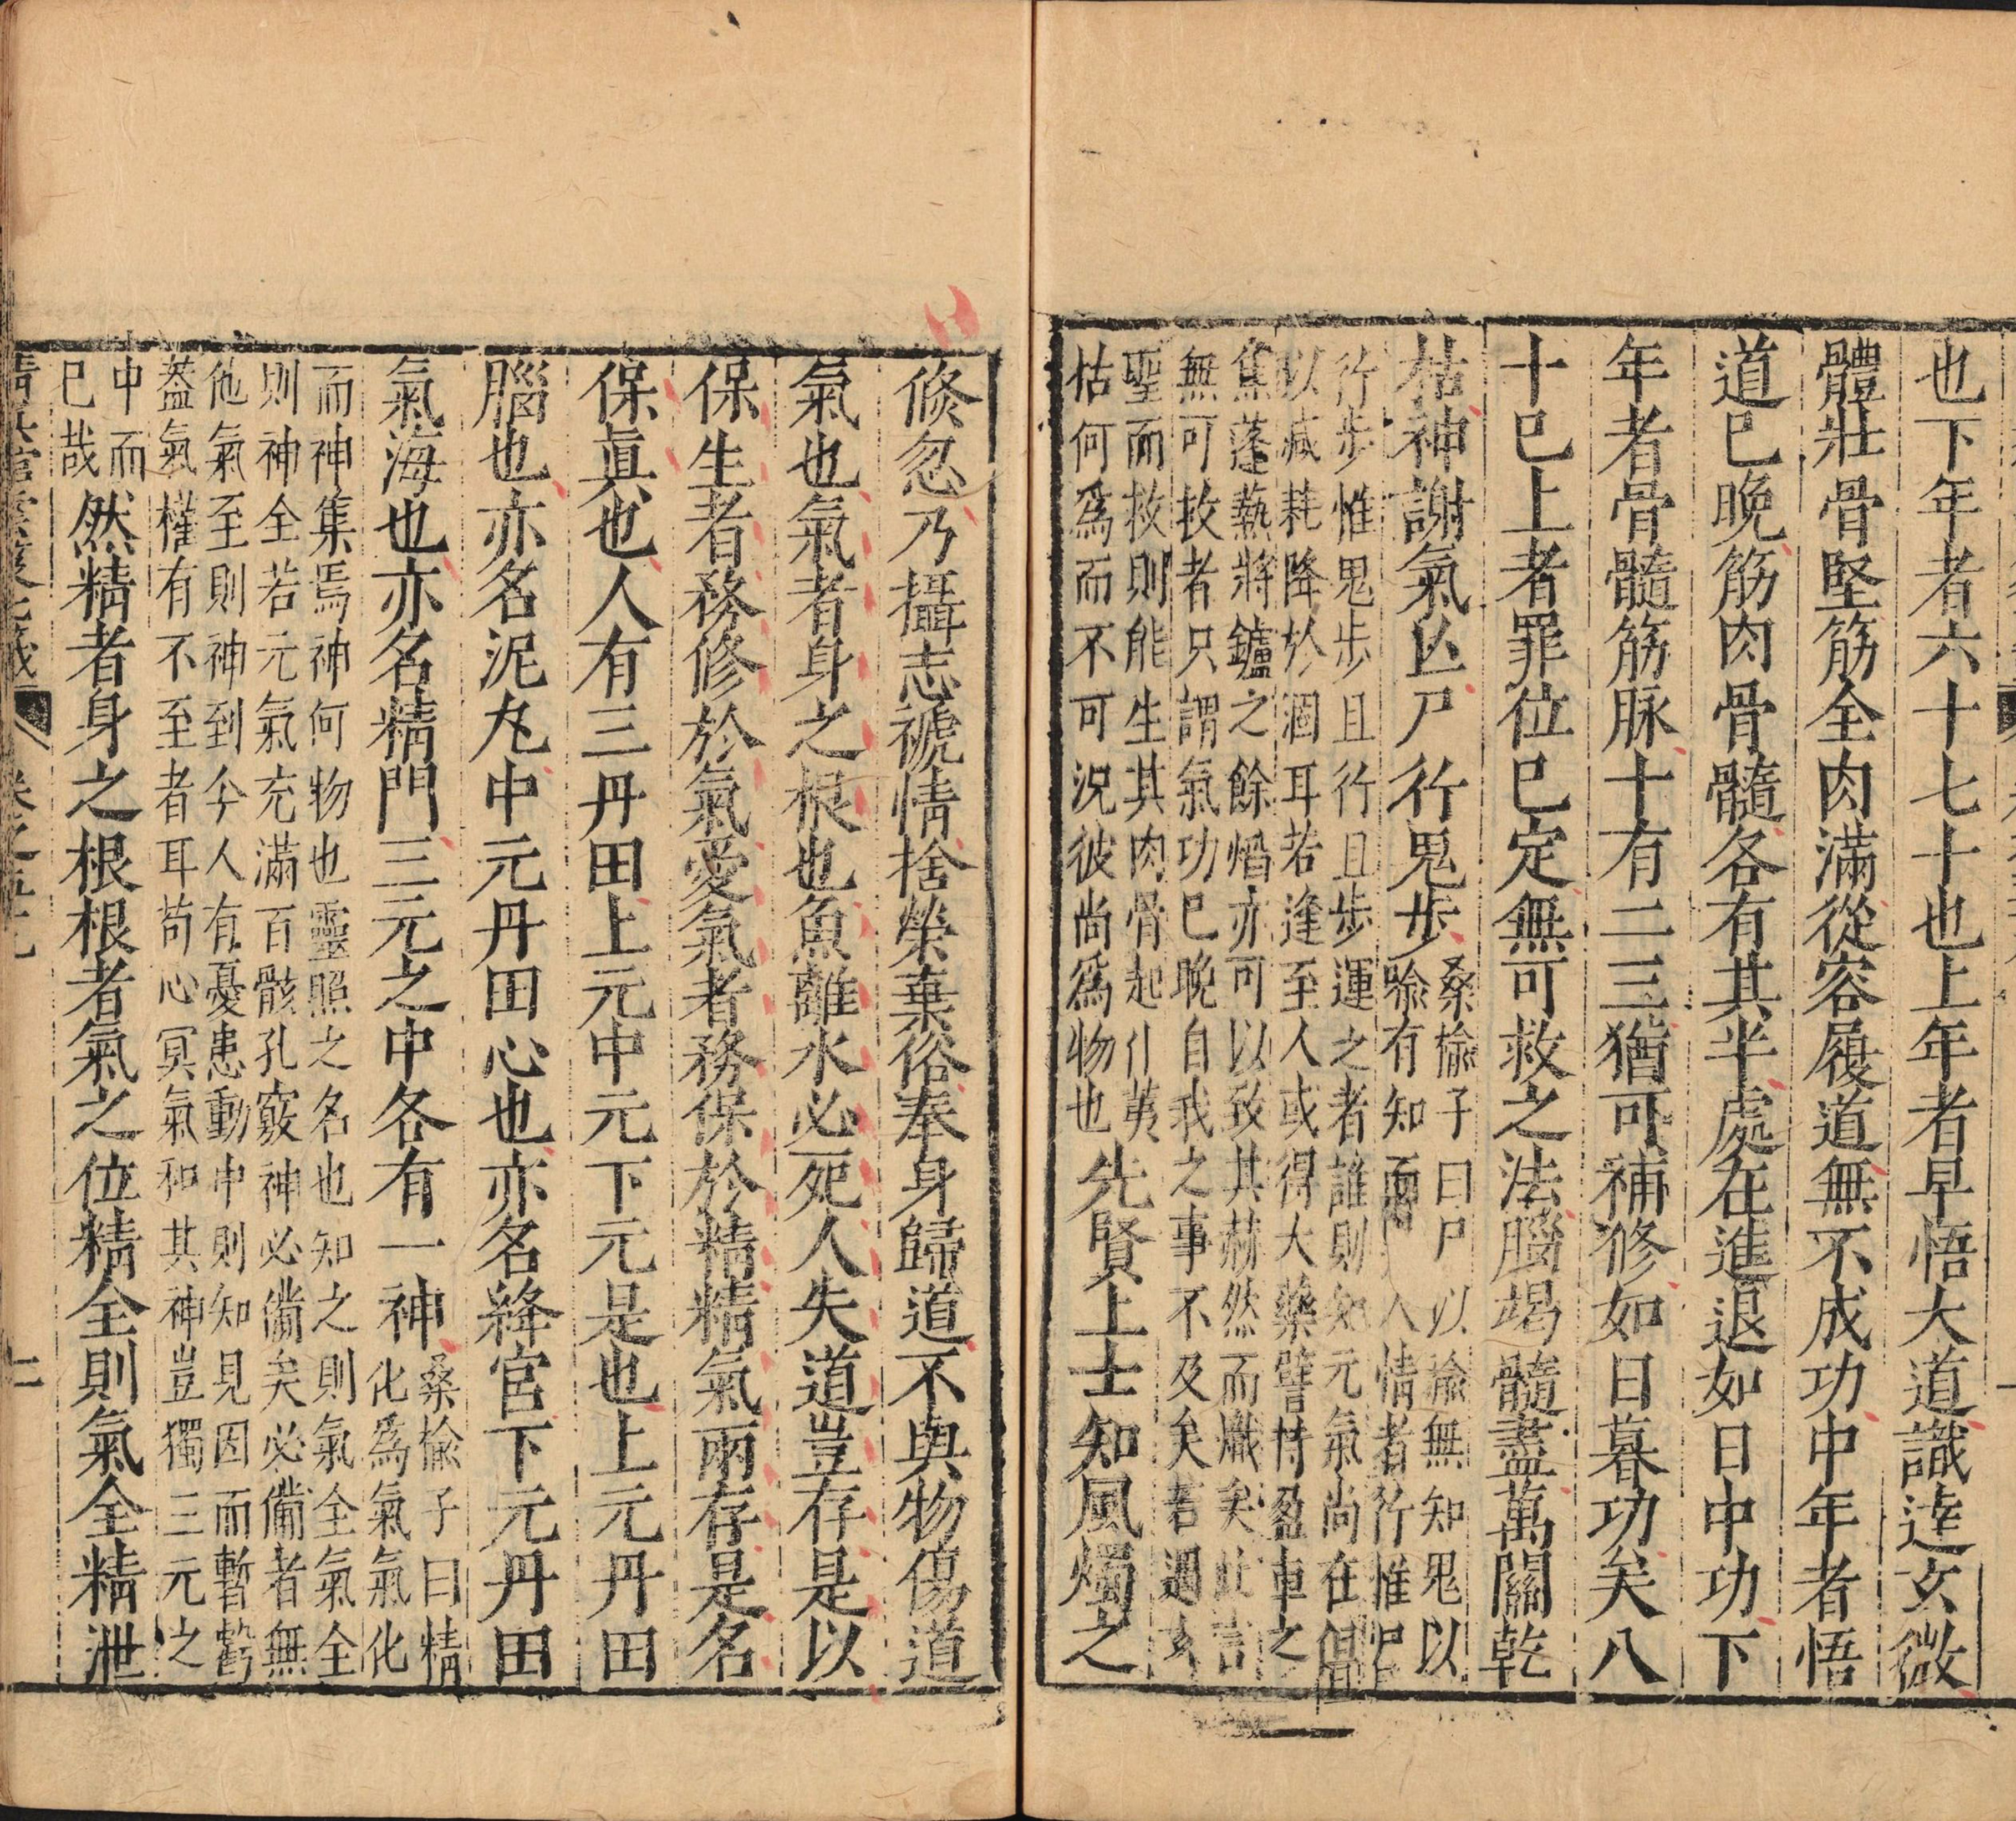 也下年者六十七十也上年者早悟大道識達玄微
體壯骨堅筋全肉滿從容履道無不成功中年者悟
道已晚筋肉骨髓各有其半處在進退如日中功下
年者骨髓筋脉十有二三猶可補修如日暮功矣八
十已上者罪位已定無可救之法腦竭髓盡萬關乾
枯神謝氣亾尸行鬼步
桑榆子曰尸以喻無知鬼以
喻有知而人情者行惟尸
行步惟鬼步且行且步運之者誰則知元氣尚在但
以減耗降於涸耳若逢至人或得大藥譬特盈車之
焦蓬熱將鑪之餘熸亦可以致其赫然而熾矣此言
無可救者只謂氣功已晚自我之事不及矣若遇玄
聖而救則能生其肉骨起仆荑
枯何爲而不可況彼尚爲物也
先賢上士知風燭之
倐忽乃攝志褫情捨榮棄俗奉身歸道不與物傷道
氣也氣者身之根也魚離水必死人失道豈存是以
保生者務修於氣愛氣者務保於精精氣兩存是名
保眞也人有三丹田上元中元下元是也上元丹田
腦也亦名泥丸中元丹田心也亦名絳宮下元丹田
氣海也亦名精門三元之中各有一神
桑榆子曰精
化爲氣氣化
而神集焉神何物也靈照之名也知之則氣全氣全
則神全若元氣充滿百骸孔竅神必備矣必備者無
他氣至則神到今人有憂患動中則知見因而暫虧
葢氣權有不至者耳苟心冥氣和其神豈獨三元之
中而
已哉
然精者身之根根者氣之位精全則氣全精泄
卷之五十九